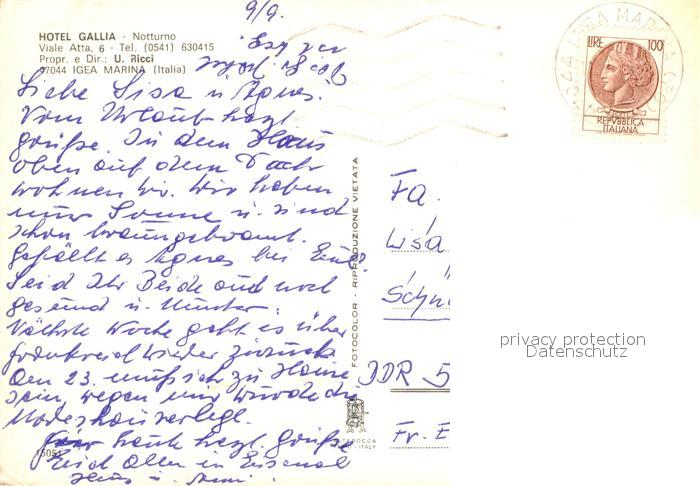 9/9.
HOTEL GALLIA - Notturno
Viale Atta, 6 - Tel. (0541) 630415
Propr. e Dir.: U. Ricci
47044 IGEA MARINA (Italia)
Liebe Lisa u. Agnes.
Vom Urlaub herzl.
grüße. In dem Haus
oben auf dem Dach
wohnen wir. Wir haben
nur Sonne u. sind
schon braungebrannt.
Gefällt es Agnes bei Euch?
Seid Ihr Beide auch noch
gesund u. munter.
Nächste Woche geht es über
Frankreich wieder zurück
den 23. muß ich zu Hause
sein, wegen mir wurde die
Modenschau verlegt.
Für heute herzl. Grüße
Euch Allen in
u.
15054
FOTOCOLOR - RIPRODUZIONE VIETATA
ITALY
LIRE 100
REPVBBLICA
ITALIANA
IGEA MARINA
Fa.
Lisa
DDR 5
Fr. E
privacy protection
Datenschutz